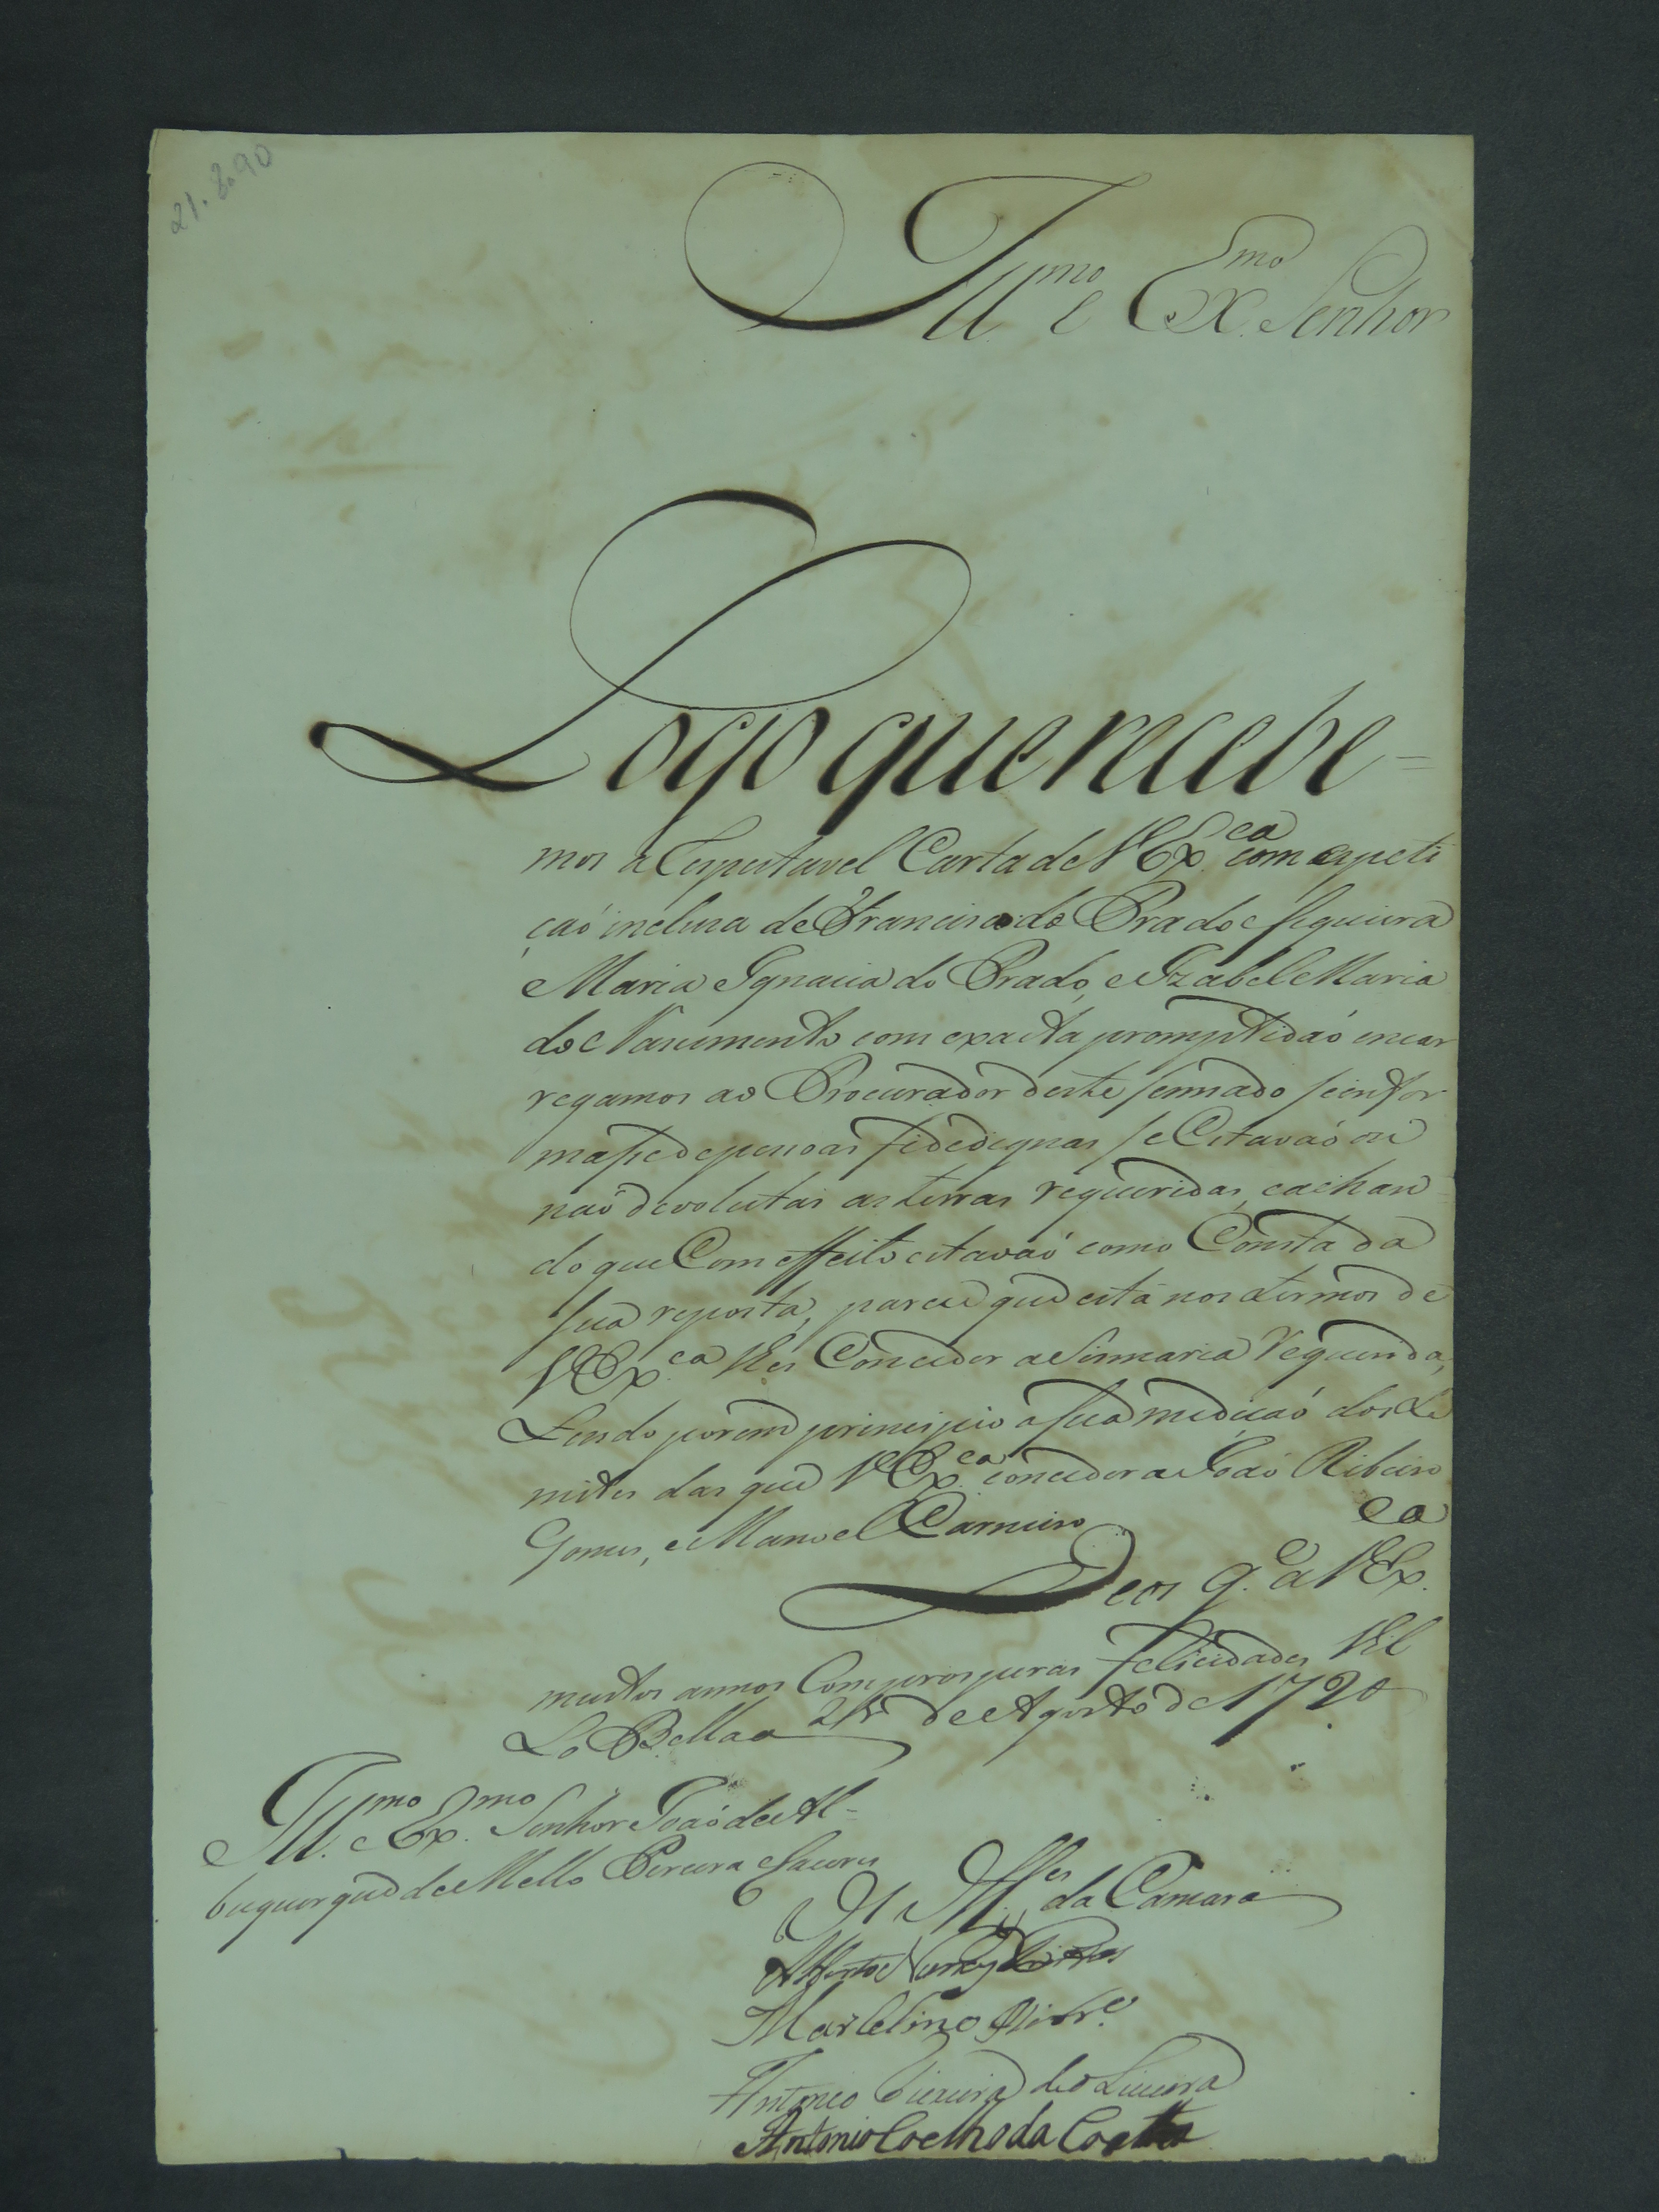 21.8.90
Ill.mo e Ex.mo Senhor
Logo que recebe=
mos a respeitavel Carta de V Ex.ca com a peti
çaõ incluza de Francisco do Prado e Siqueira
Maria Ignacia do Prado, e Izabel Maria
do Nascimento com exacta promptidaõ encar
regamos ao Procurador deste Sennado se infor
masse de pessoas fidedignas se Estavaõ ou
naõ devolutas as terras requeridas, e achan
do que Com effeito estavaõ como Consta da
sua reposta, parece que está nos termos de
V Ex.ca lhes Conceder a Sesmaria Requerida,
Tendo porem principio a sua mediçaõ dos Li
mites das que V Ex.ca conceder a Joaõ Ribeiro
Gomes, e Manoel Carneiro
Deos g.e a V Ex.ca
muitos annos Com prosperas felicidades Vil
La Bella 25 de Agosto de 1790
Ill.mo e Ex.mo Senhor Joaõ de Al-
buquerque de Mello Pereira e Caceres
da Camara
Marcelino Ribr.o
Antonio
Antonio Coelho da Costa